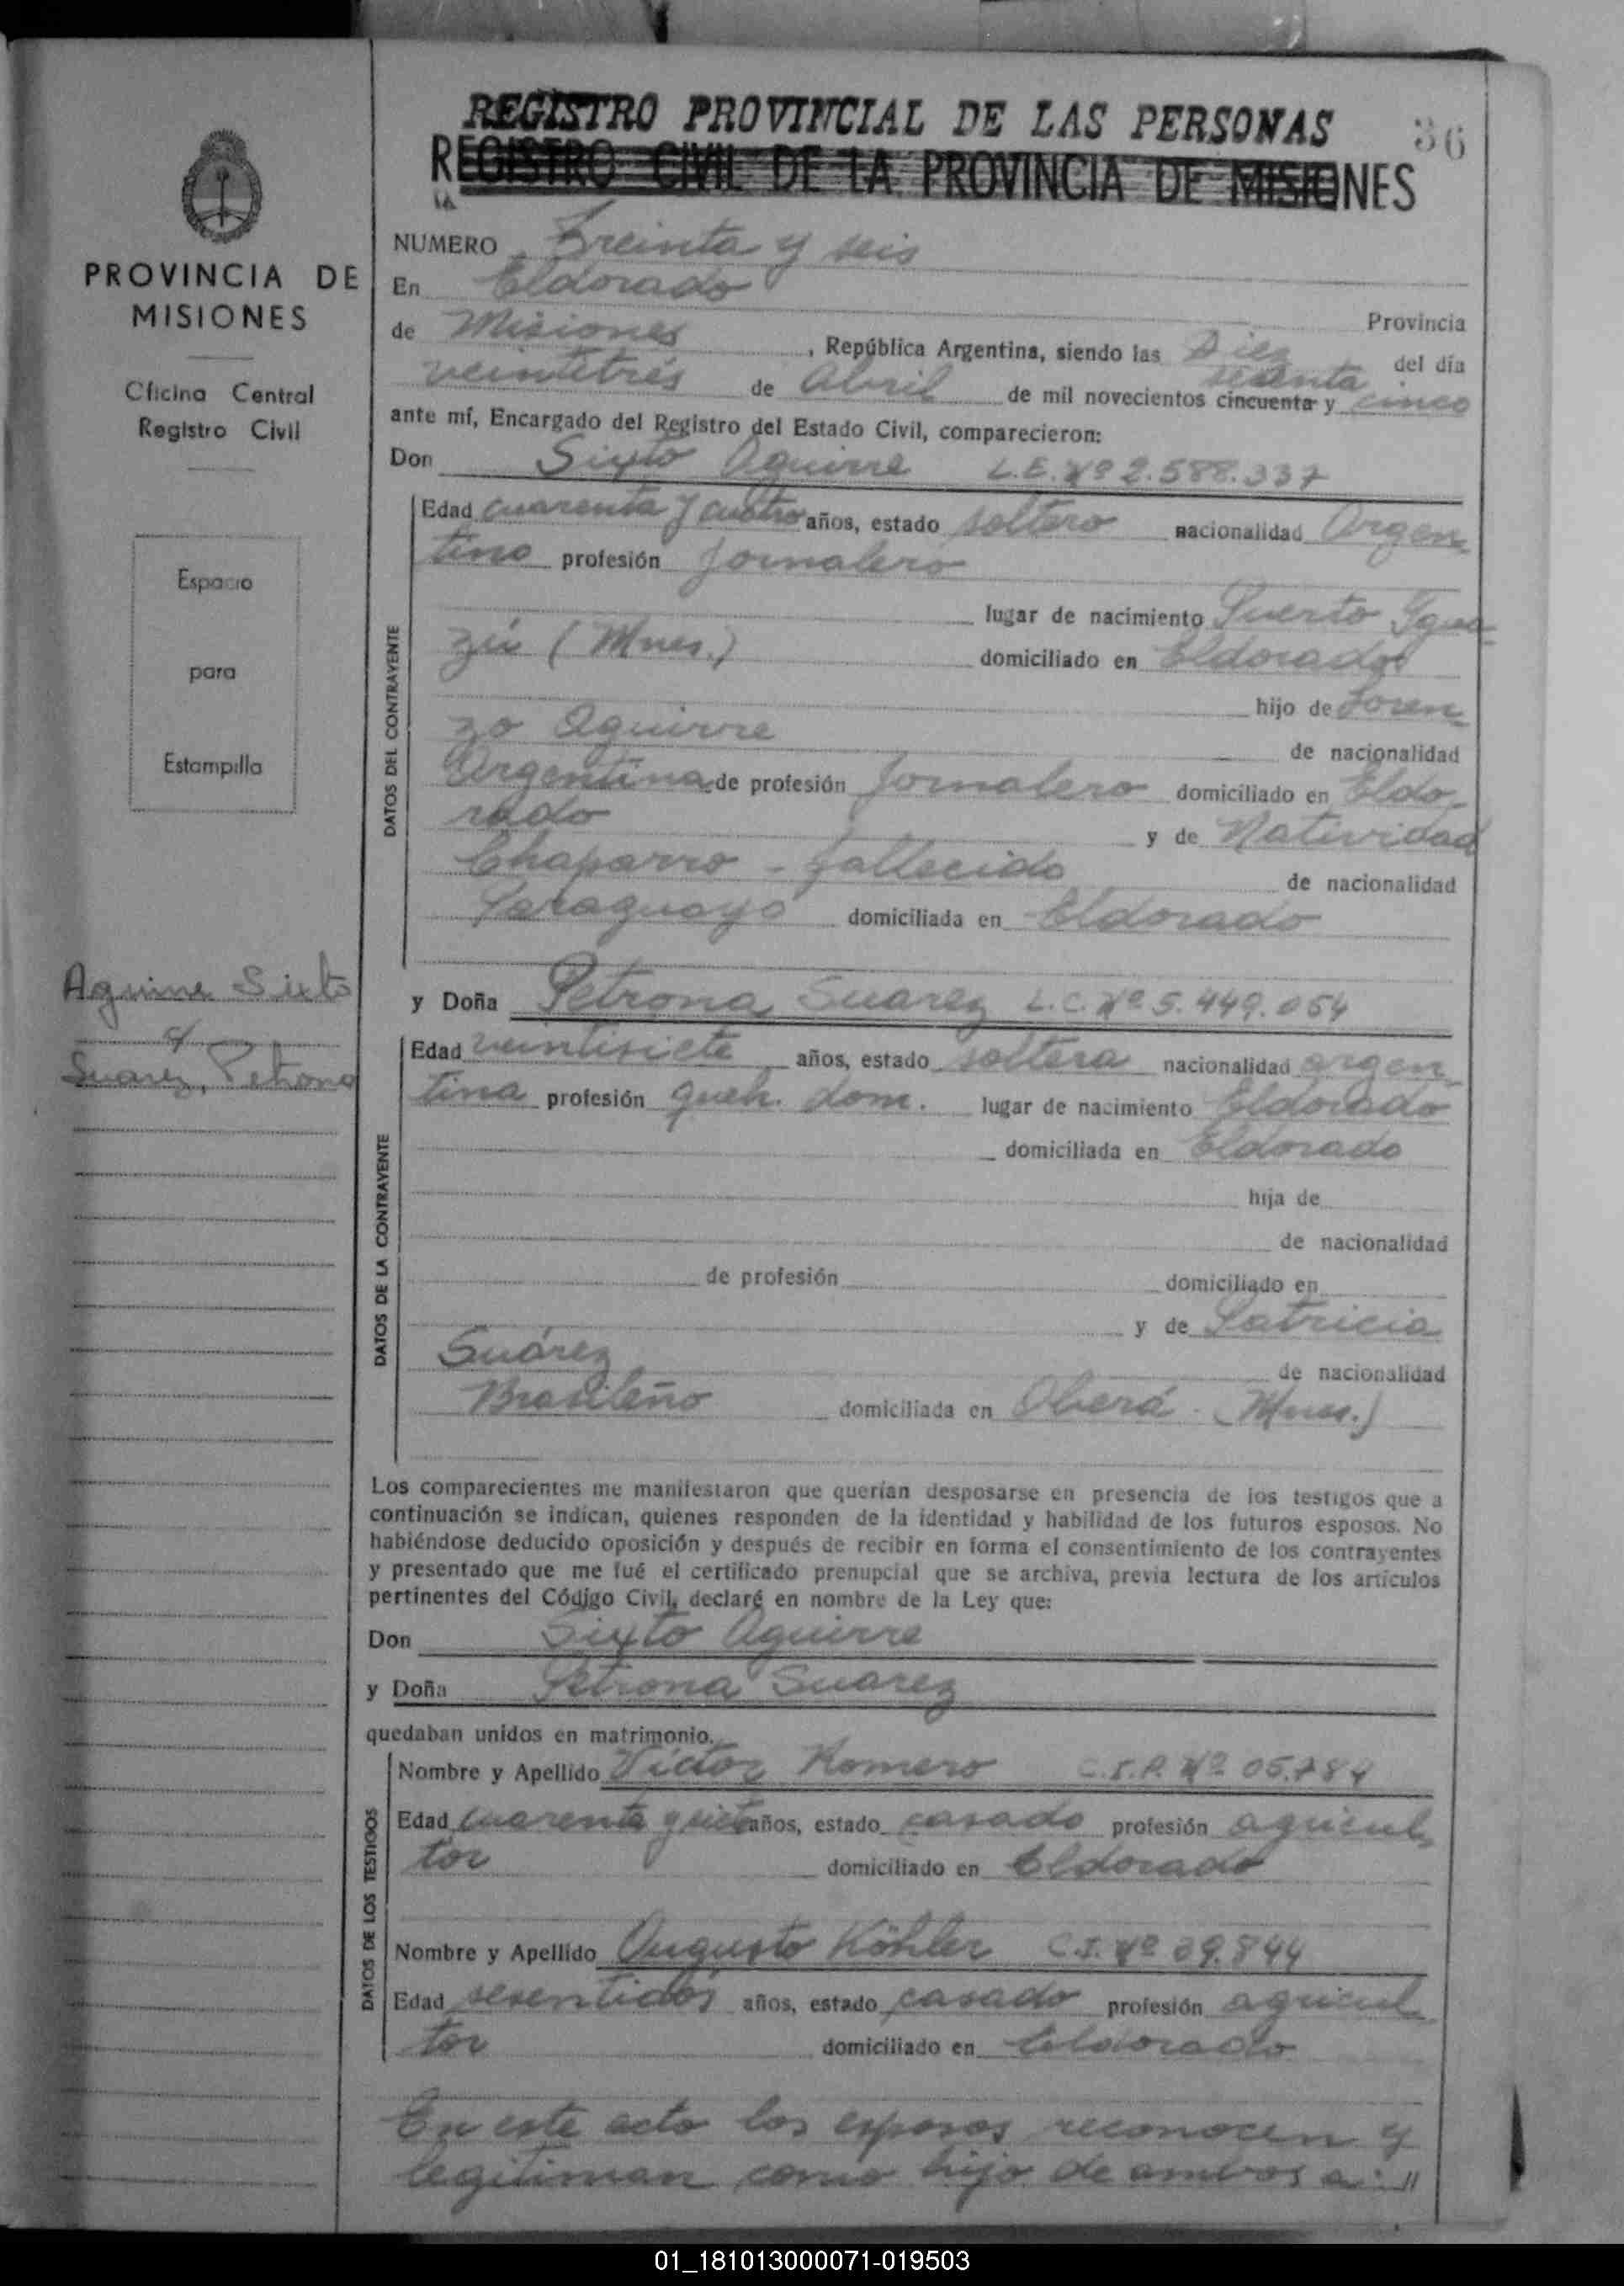 REGISTRO PROVINCIAL DE LAS PERSONAS
36
REGISTRO CIVIL DE LA PROVINCIA DE MISIONES
PROVINCIA DE
MISIONES
Oficina Central
Registro Civil
Espacio
para
Estampilla
Aguirre Sixto
y
Suarez, Petrona
NUMERO Treinta y seis
En Eldorado
Provincia
de Misiones, República Argentina, siendo las Diez del día
sesenta
veintitrés de Abril de mil novecientos cincuenta y cinco
ante mí, Encargado del Registro del Estado Civil, comparecieron:
Don Sixto Aguirre L.E. Nº 2.588.337
DATOS DEL CONTRAYENTE
Edad cuarenta y cuatro años, estado soltero nacionalidad Argen
tino profesión Jornalero
lugar de nacimiento Puerto Igua
zú (Mnes.) domiciliado en Eldorado
hijo de Loren
zo Aguirre
de nacionalidad
Argentina de profesión Jornalero domiciliado en Eldo
rado y de Natividad
Chaparro - fallecido
de nacionalidad
Paraguayo domiciliada en Eldorado
y Doña Petrona Suarez L.C. Nº 5.449.054
DATOS DE LA CONTRAYENTE
Edad veintisiete años, estado soltera nacionalidad argen
tina profesión queh. dom. lugar de nacimiento Eldorado
domiciliada en Eldorado
hija de
de nacionalidad
de profesión domiciliado en
y de Patricia
Suárez
de nacionalidad
Brasileño domiciliada en Oberá - (Mnes.)
Los comparecientes me manifestaron que querían desposarse en presencia de los testigos que a
continuación se indican, quienes responden de la identidad y habilidad de los futuros esposos. No
habiéndose deducido oposición y después de recibir en forma el consentimiento de los contrayentes
y presentado que me fué el certificado prenupcial que se archiva, previa lectura de los artículos
pertinentes del Código Civil, declaré en nombre de la Ley que:
Don Sixto Aguirre
y Doña Petrona Suarez
quedaban unidos en matrimonio.
DATOS DE LOS TESTIGOS
Nombre y Apellido Víctor Romero Nº 05.784
Edad cuarenta y siete años, estado casado profesión agricul
tor domiciliado en Eldorado
Nombre y Apellido Augusto Köhler C.I. Nº 39.844
Edad sesentidós años, estado casado profesión agricul
tor domiciliado en Eldorado
En este acto los esposos reconocen y
legitiman como hijo de ambos a: //
01_181013000071-019503